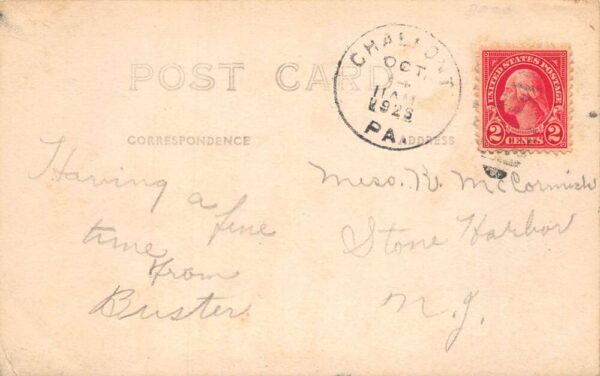 POST CARD
CHALFONT
OCT
4
11 AM
1926
PA.
UNITED STATES POSTAGE
2 CENTS 2
CORRESPONDENCE
ADDRESS
Having a fine
time from
Buster
Miss. K. McCormick
Stone Harbor
N.J.